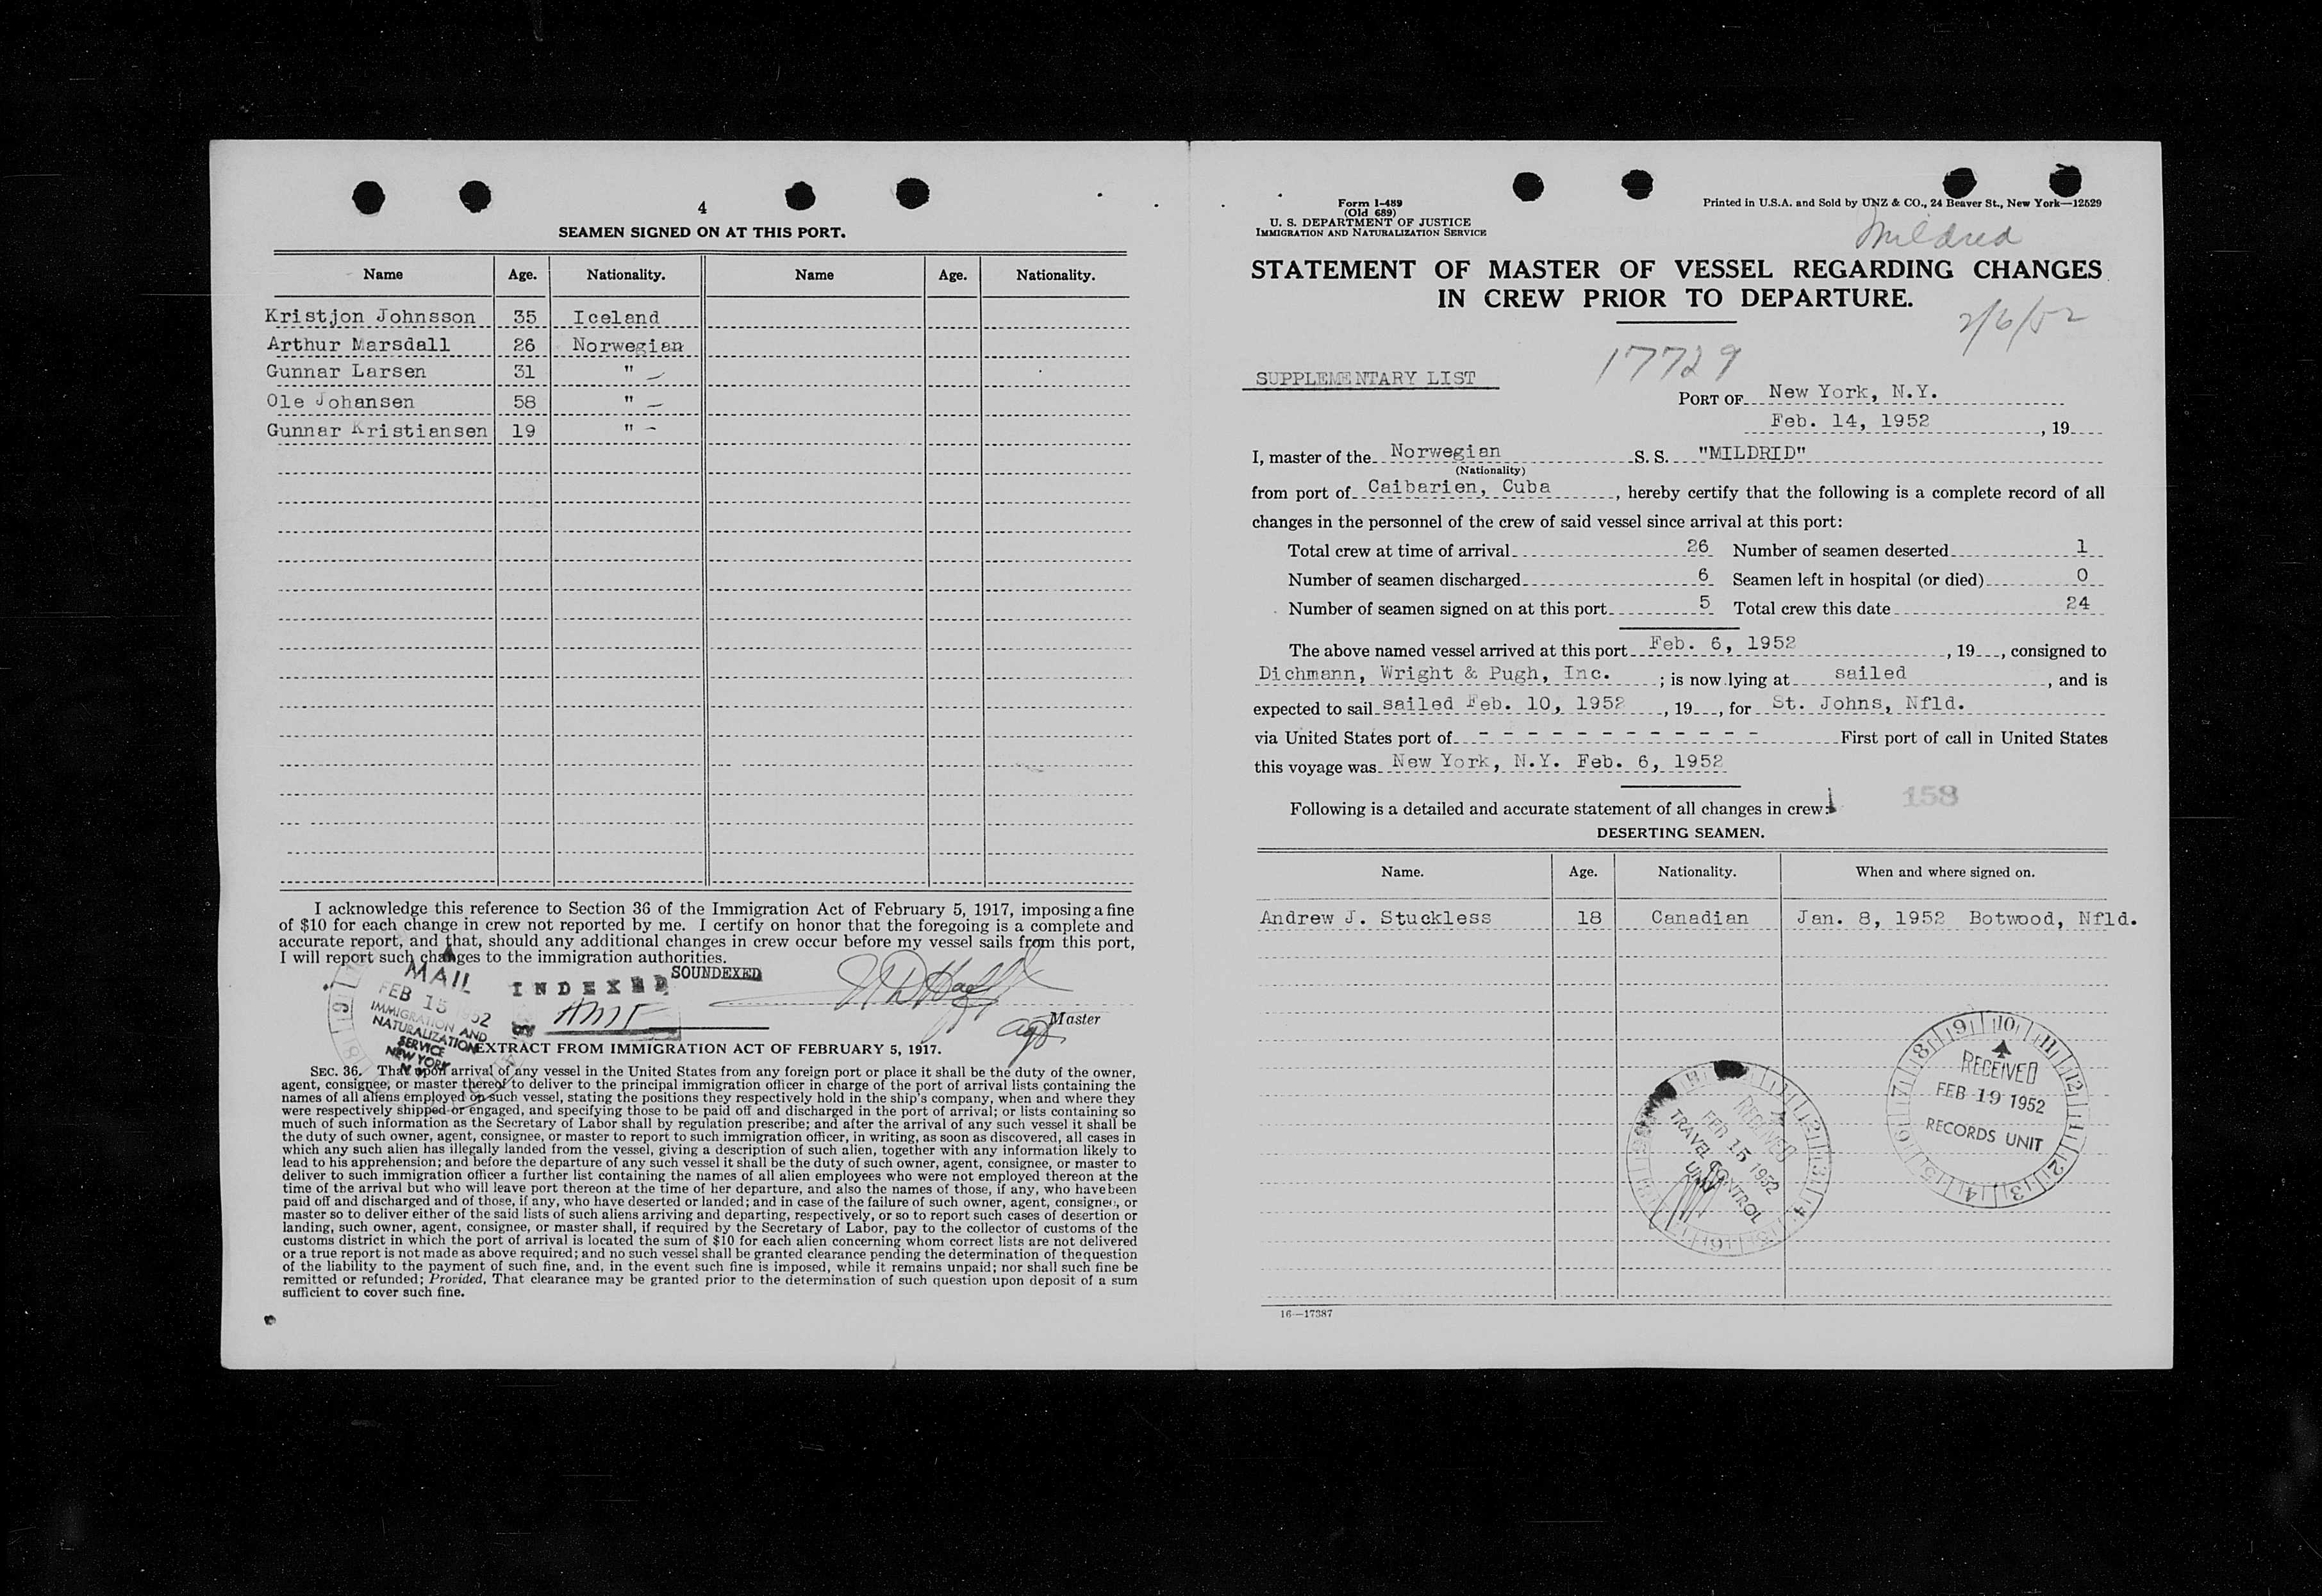 4
SEAMEN SIGNED ON AT THIS PORT.
Name Age. Nationality. Name Age. Nationality.
Kristjon Johnsson 35 Iceland
Arthur Marsdall 26 Norwegian
Gunnar Larsen 31 "
Ole Johansen 58 "
Gunnar Kristiansen 19 "
I acknowledge this reference to Section 36 of the Immigration Act of February 5, 1917, imposing a fine
of $10 for each change in crew not reported by me. I certify on honor that the foregoing is a complete and
accurate report, and that, should any additional changes in crew occur before my vessel sails from this port,
I will report such changes to the immigration authorities.
SOUNDEXED
INDEXED
MAIL
FEB 15 1952
IMMIGRATION AND
NATURALIZATION
SERVICE
NEW YORK
Master
EXTRACT FROM IMMIGRATION ACT OF FEBRUARY 5, 1917.
SEC. 36. That upon arrival of any vessel in the United States from any foreign port or place it shall be the duty of the owner,
agent, consignee, or master thereof to deliver to the principal immigration officer in charge of the port of arrival lists containing the
names of all aliens employed on such vessel, stating the positions they respectively hold in the ship's company, when and where they
were respectively shipped or engaged, and specifying those to be paid off and discharged in the port of arrival; or lists containing so
much of such information as the Secretary of Labor shall by regulation prescribe; and after the arrival of any such vessel it shall be
the duty of such owner, agent, consignee, or master to report to such immigration officer, in writing, as soon as discovered, all cases in
which any such alien has illegally landed from the vessel, giving a description of such alien, together with any information likely to
lead to his apprehension; and before the departure of any such vessel it shall be the duty of such owner, agent, consignee, or master to
deliver to such immigration officer a further list containing the names of all alien employees who were not employed thereon at the
time of the arrival but who will leave port thereon at the time of her departure, and also the names of those, if any, who have been
paid off and discharged and of those, if any, who have deserted or landed; and in case of the failure of such owner, agent, consignee, or
master so to deliver either of the said lists of such aliens arriving and departing, respectively, or so to report such cases of desertion or
landing, such owner, agent, consignee, or master shall, if required by the Secretary of Labor, pay to the collector of customs of the
customs district in which the port of arrival is located the sum of $10 for each alien concerning whom correct lists are not delivered
or a true report is not made as above required; and no such vessel shall be granted clearance pending the determination of the question
of the liability to the payment of such fine, and, in the event such fine is imposed, while it remains unpaid; nor shall such fine be
remitted or refunded; Provided, That clearance may be granted prior to the determination of such question upon deposit of a sum
sufficient to cover such fine.
Form I-489
(Old 689)
U. S. DEPARTMENT OF JUSTICE
IMMIGRATION AND NATURALIZATION SERVICE
Printed in U.S.A. and Sold by UNZ & CO., 24 Beaver St., New York—12529
Mildred
STATEMENT OF MASTER OF VESSEL REGARDING CHANGES
IN CREW PRIOR TO DEPARTURE.
2/6/52
17729
SUPPLEMENTARY LIST
PORT OF New York, N.Y.
Feb. 14, 1952, 19
I, master of the Norwegian S. S. "MILDRID"
(Nationality)
from port of Caibarien, Cuba, hereby certify that the following is a complete record of all
changes in the personnel of the crew of said vessel since arrival at this port:
Total crew at time of arrival 26 Number of seamen deserted 1
Number of seamen discharged 6 Seamen left in hospital (or died) 0
Number of seamen signed on at this port 5 Total crew this date 24
The above named vessel arrived at this port Feb. 6, 1952, 19, consigned to
Dichmann, Wright & Pugh, Inc. ; is now lying at sailed, and is
expected to sail sailed Feb. 10, 1952, 19, for St. Johns, Nfld.
via United States port of - - - - - - - - - - - - First port of call in United States
this voyage was New York, N.Y. Feb. 6, 1952
Following is a detailed and accurate statement of all changes in crew:
158
DESERTING SEAMEN.
Name. Age. Nationality. When and where signed on.
Andrew J. Stuckless 18 Canadian Jan. 8, 1952 Botwood, Nfld.
RECEIVED
FEB 15 1952
TRAVEL CONTROL
UNIT
RECEIVED
FEB 19 1952
RECORDS UNIT
16—17387